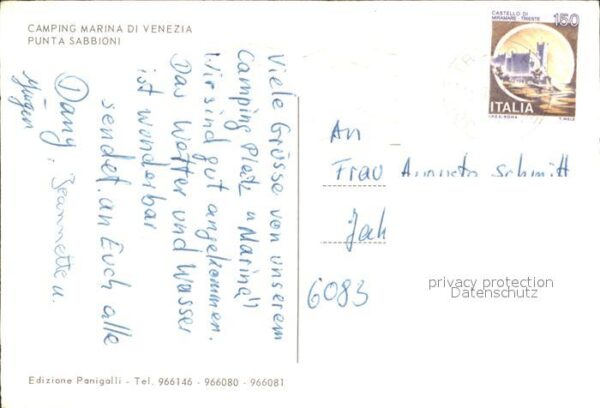 CAMPING MARINA DI VENEZIA
PUNTA SABBIONI
Viele Grüsse von unserem
Camping Platz "Marina"
Wir sind gut angekommen.
Das Wetter und Wasser
ist wunderbar
sendet an Euch alle
Dany, Jeannette u.
Jürgen
CASTELLO DI
MIRAMARE - TRIESTE
150
ITALIA
An
Frau Schmitt
6083
privacy protection
Datenschutz
Edizione Panigalli - Tel. 966146 - 966080 - 966081